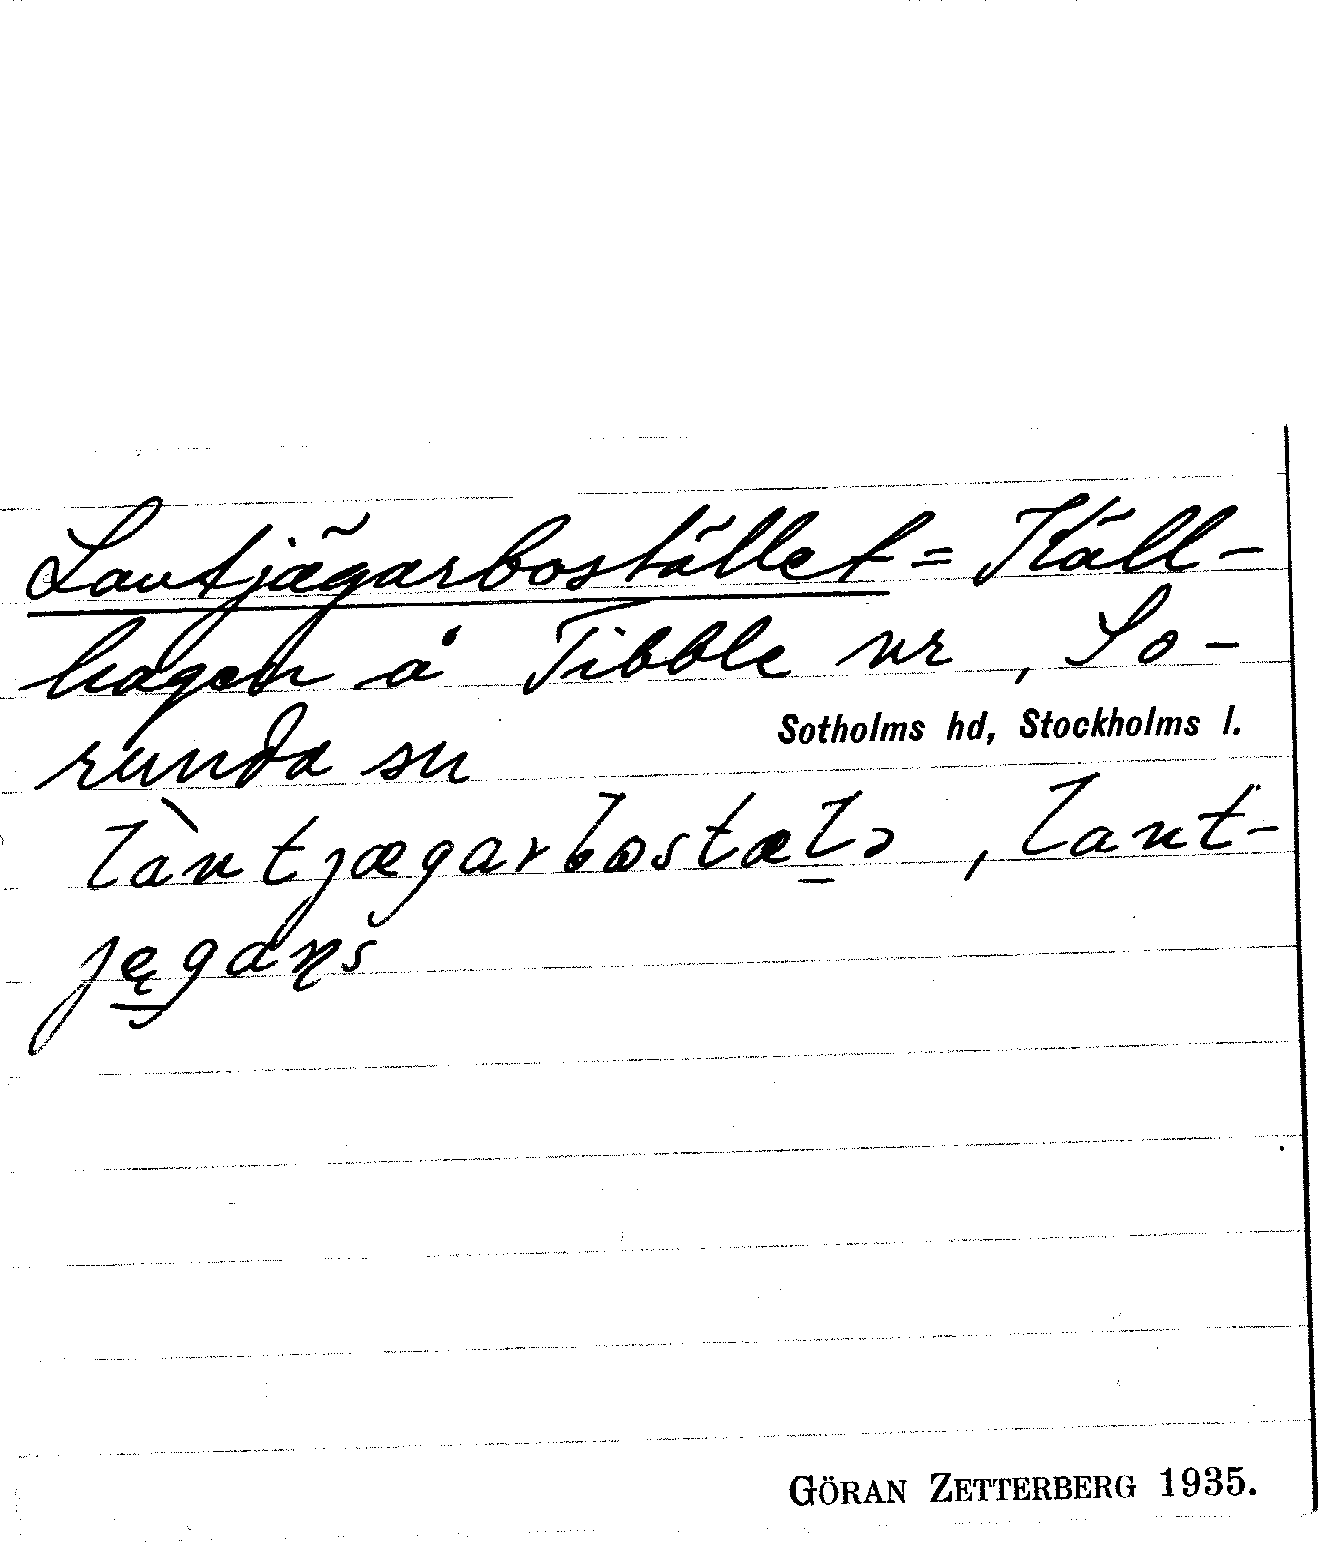 Lantjägarbostället = Käll-
hagen å Tibble nr , So-
runda sn
Sotholms hd, Stockholms l.
làntjægarbostæl̠ə , lant-
ję̠gaṇš
GÖRAN ZETTERBERG 1935.